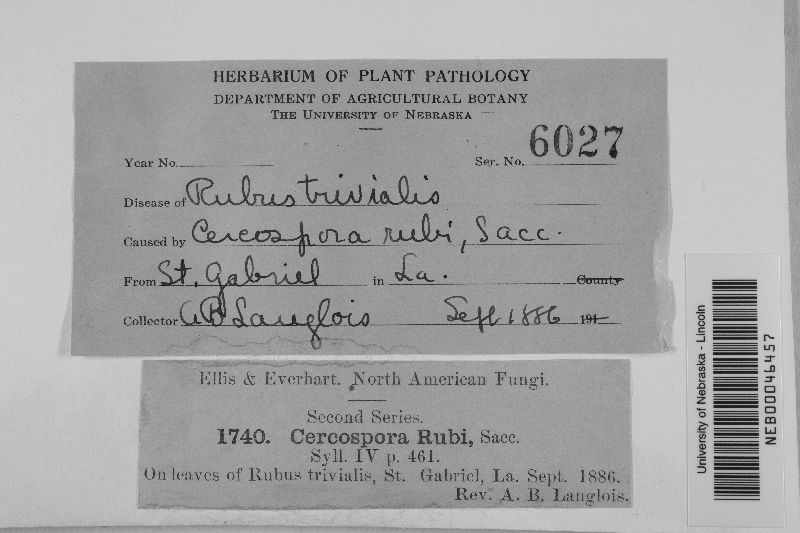 HERBARIUM OF PLANT PATHOLOGY
DEPARTMENT OF AGRICULTURAL BOTANY
THE UNIVERSITY OF NEBRASKA
Year No. Ser. No. 6027
Disease of Rubus trivialis
Caused by Cercospora rubi, Sacc.
From St. Gabriel in La. County
Collector AB Langlois Sept 1886 191
Ellis & Everhart. North American Fungi.
Second Series.
1740. Cercospora Rubi, Sacc.
Syll. IV p. 461.
On leaves of Rubus trivialis, St. Gabriel, La. Sept. 1886.
Rev. A. B. Langlois.
University of Nebraska - Lincoln
NEB00046457